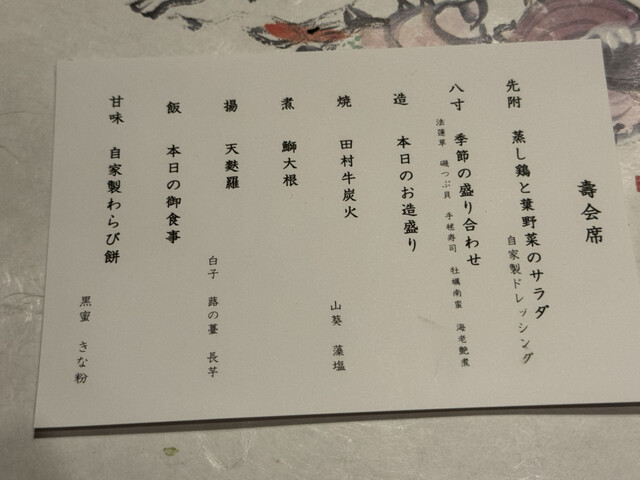 壽会席
先附 蒸し鶏と葉野菜のサラダ
自家製ドレッシング
八寸 季節の盛り合わせ
法蓮草 磯つぶ貝 手毬寿司 牡蠣南蛮 海老艶煮
造 本日のお造盛り
焼 田村牛炭火
山葵 藻塩
煮 鰤大根
揚 天麩羅
白子 蕗の薹 長芋
飯 本日の御食事
甘味 自家製わらび餅
黒蜜 きな粉